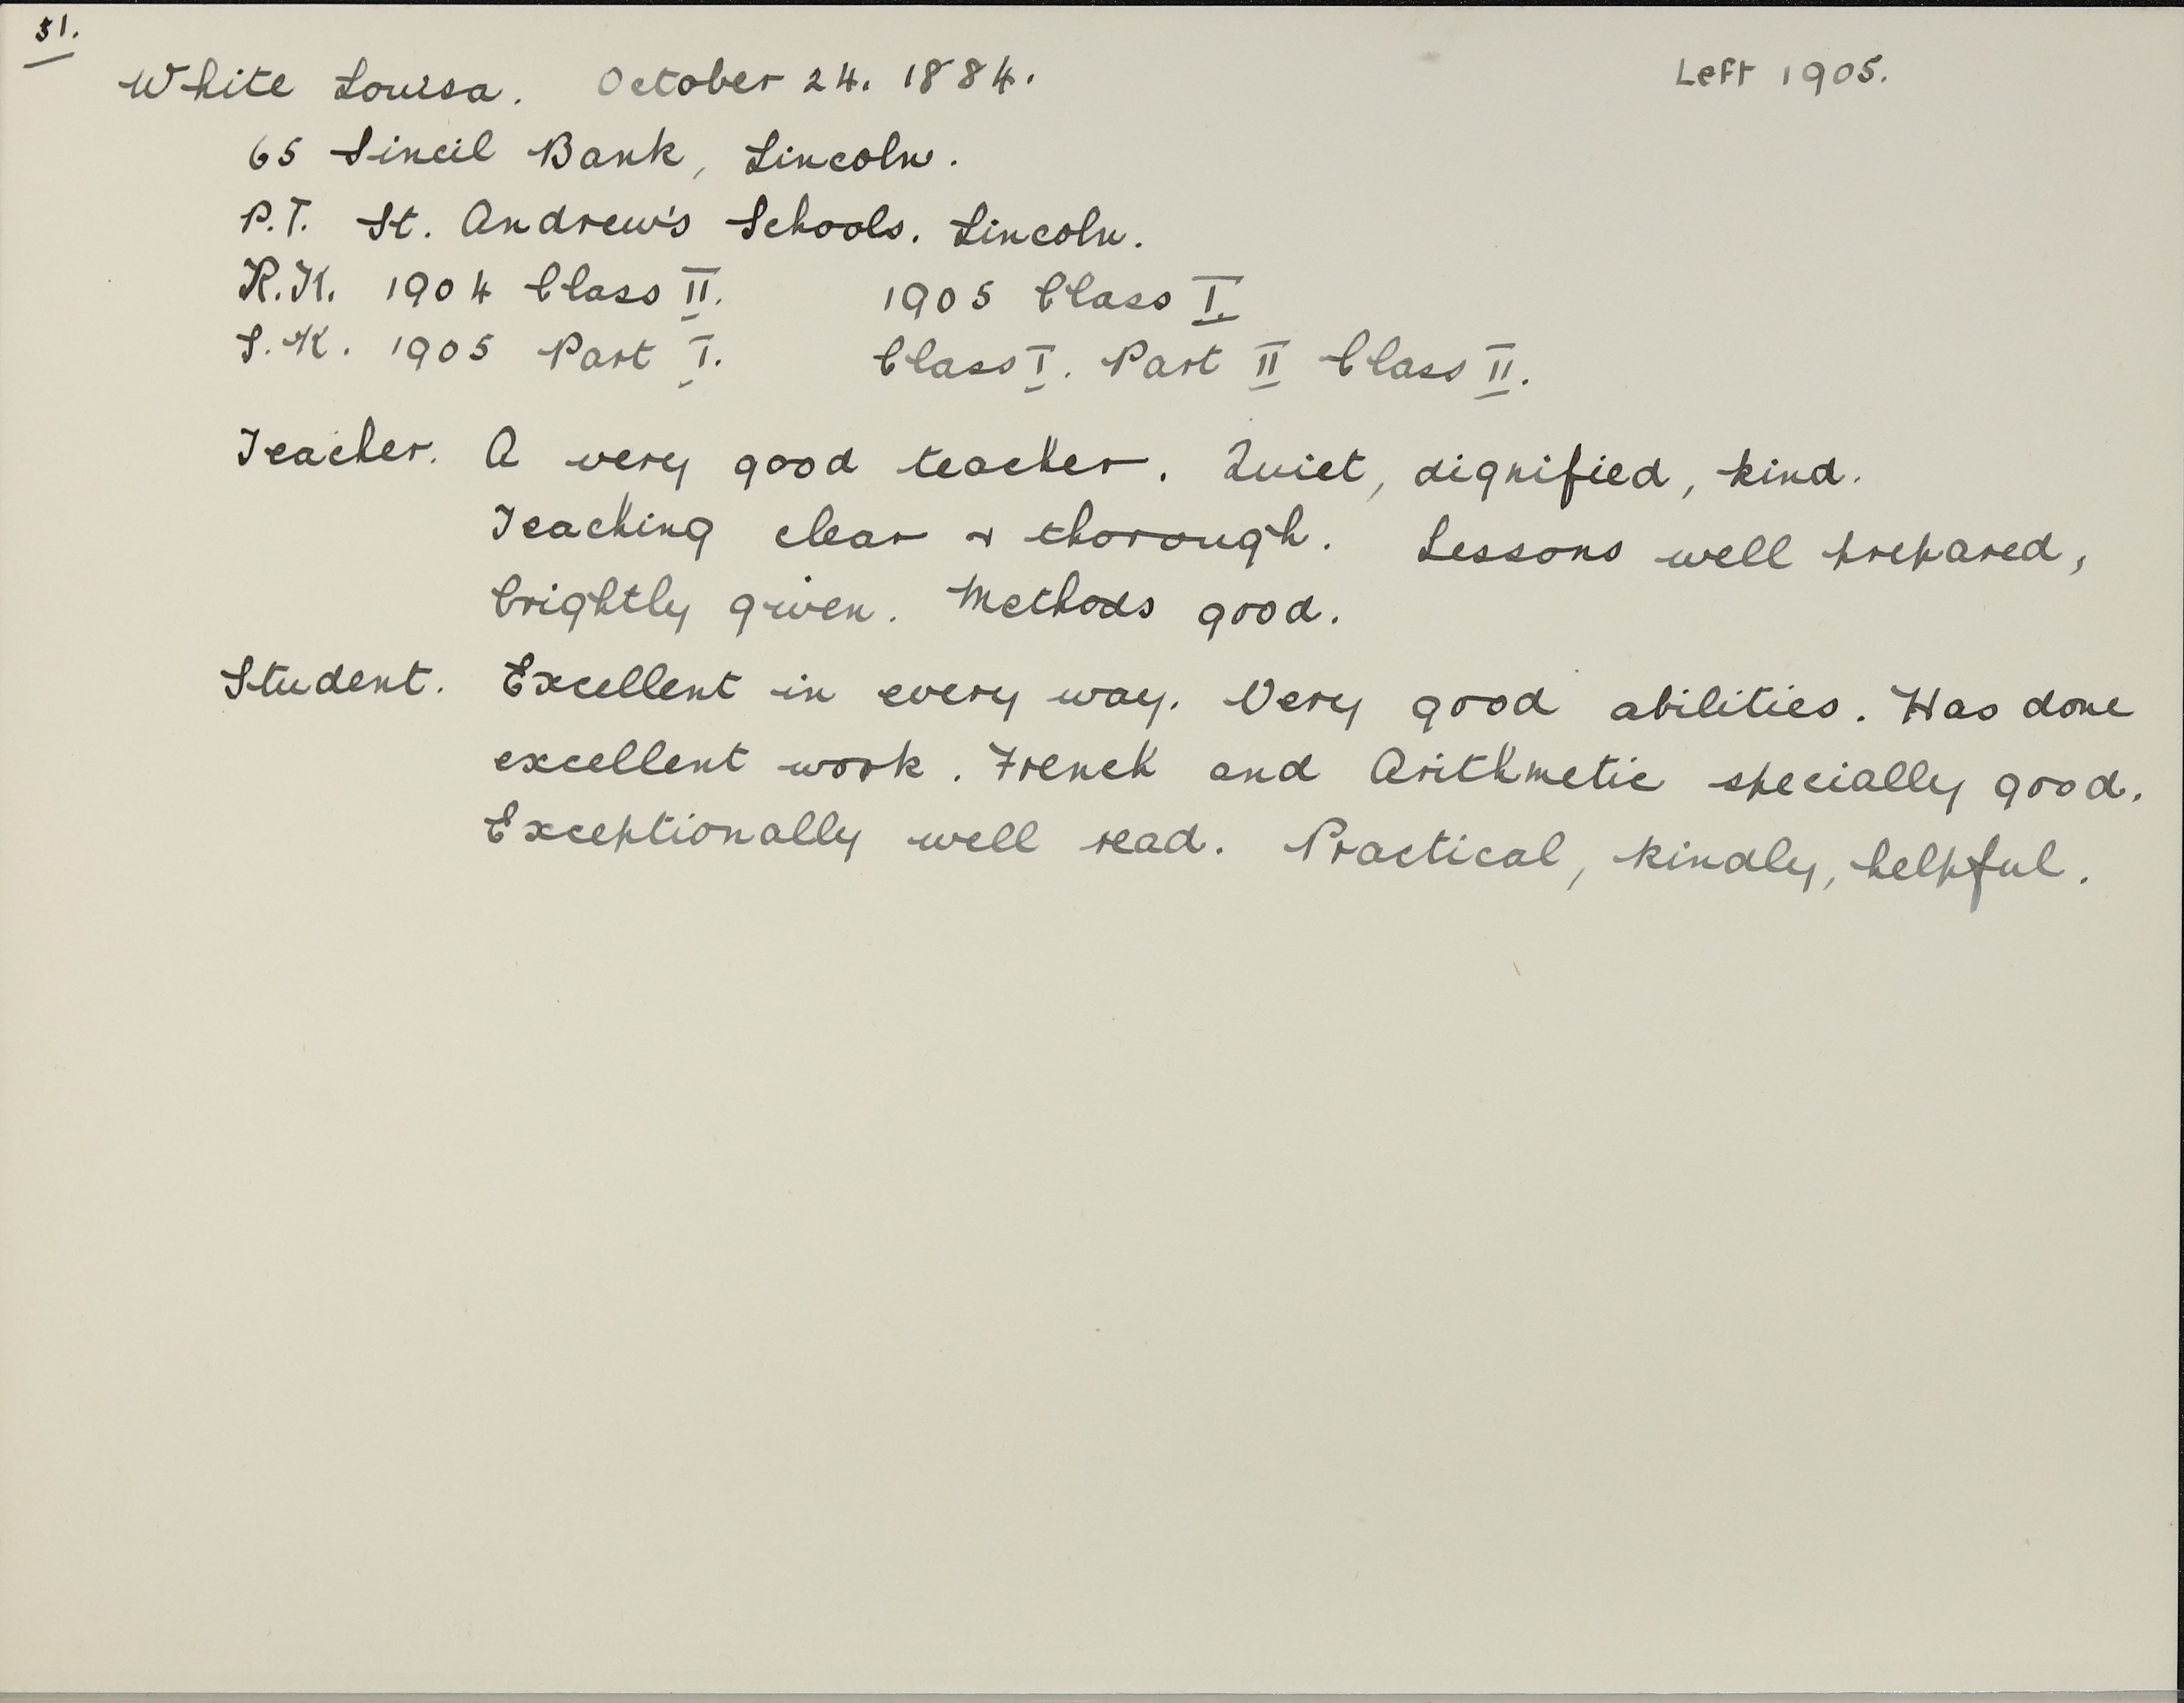 51.
White Louisa. October 24. 1884. Left 1905.
65 Sincil Bank, Lincoln.
P.T. St. Andrew's Schools. Lincoln.
R.K. 1904 Class II. 1905 Class I.
S.K. 1905 Part I. Class I. Part II Class II.
Teacher. A very good teacher. Quiet, dignified, kind.
Teaching clear & thorough. Lessons well prepared,
brightly given. Methods good.
Student. Excellent in every way. Very good abilities. Has done
excellent work. French and Arithmetic specially good.
Exceptionally well read. Practical, kindly, helpful.